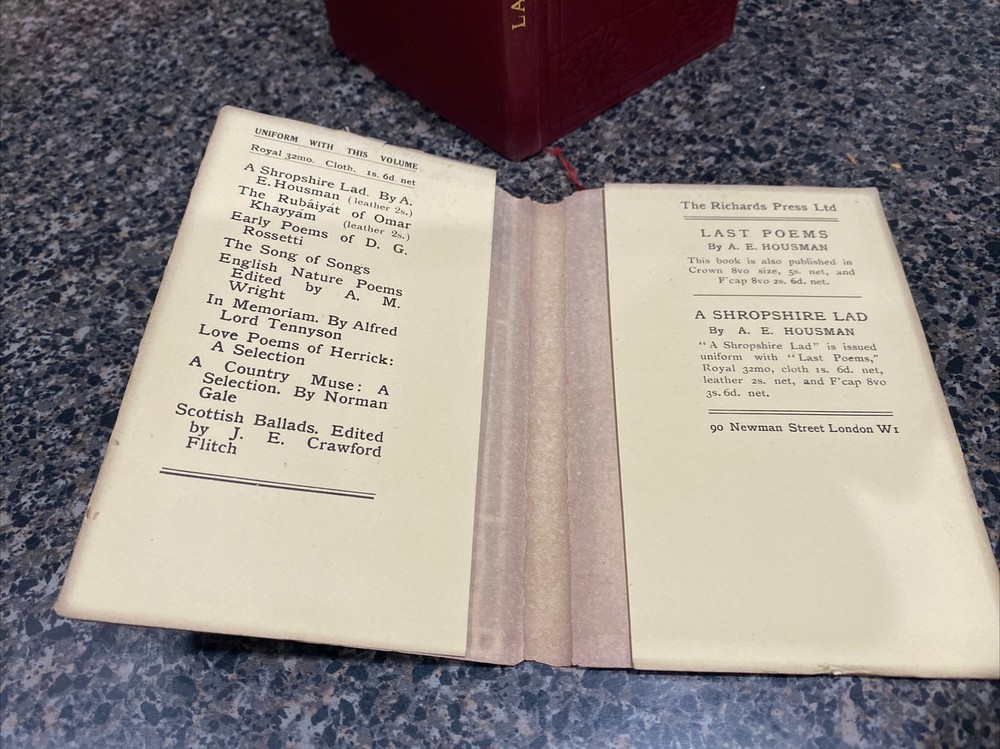 LA
UNIFORM WITH THIS VOLUME
Royal 32mo. Cloth. 1s. 6d net
A Shropshire Lad. By A.
E. Housman (leather 2s.)
The Rubáiyát of Omar
Khayyám (leather 2s.)
Early Poems of D. G.
Rossetti
The Song of Songs
English Nature Poems
Edited by A. M.
Wright
In Memoriam. By Alfred
Lord Tennyson
Love Poems of Herrick:
A Selection
A Country Muse: A
Selection. By Norman
Gale
Scottish Ballads. Edited
by J. E. Crawford
Flitch
The Richards Press Ltd
LAST POEMS
By A. E. HOUSMAN
This book is also published in
Crown 8vo size, 5s. net, and
F'cap 8vo 2s. 6d. net.
A SHROPSHIRE LAD
By A. E. HOUSMAN
"A Shropshire Lad" is issued
uniform with "Last Poems,"
Royal 32mo, cloth 1s. 6d. net,
leather 2s. net, and F'cap 8vo
3s. 6d. net.
90 Newman Street London W1